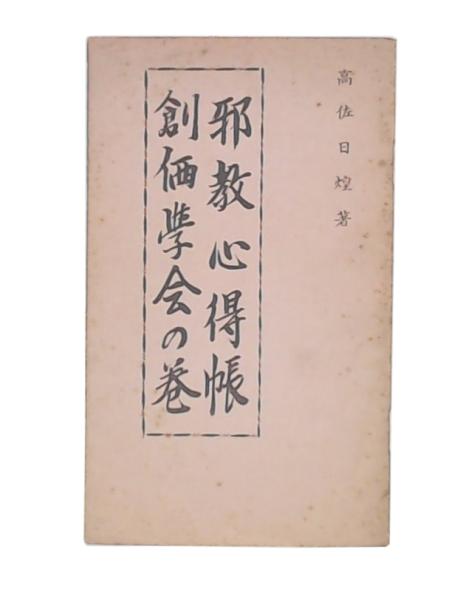 高佐日煌著
邪教心得帳
創価學会の巻